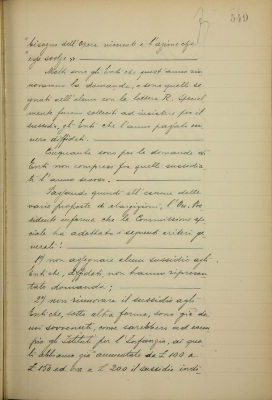 349
bisogno dell'opera rinnovata e l'azione che
essa svolge.»
Molti sono gli Enti che quest'anno rin-
novarono la domanda, e sono quelli se-
gnati nell'elenco con la lettera R.
mente furono il
sussidi, gli Enti che l'anno
vennero diffidati.
Cinquanta sono poi le domande di
Enti non compresi fra quelli sussidia-
ti l'anno scorso.
Passando quindi all'esame delle
varie proposte di elargizioni, l'On. Pre-
sidente informa che la Commissione spe-
ciale ha adottato i seguenti criteri ge-
nerali:
1°) non assegnare alcun sussidio agli
Enti che, diffidati, non hanno ripresen-
tata domanda;
2°) non rinnovare il sussidio agli
Enti che, sotto altra forma, sono già da
noi sovvenuti, come sarebbero ad esem-
pio gli Istituti per l'Infanzia, ai qua-
li abbiamo già aumentato da £ 100 a
£ 150 ed ora a £ 200 il sussidio indi-